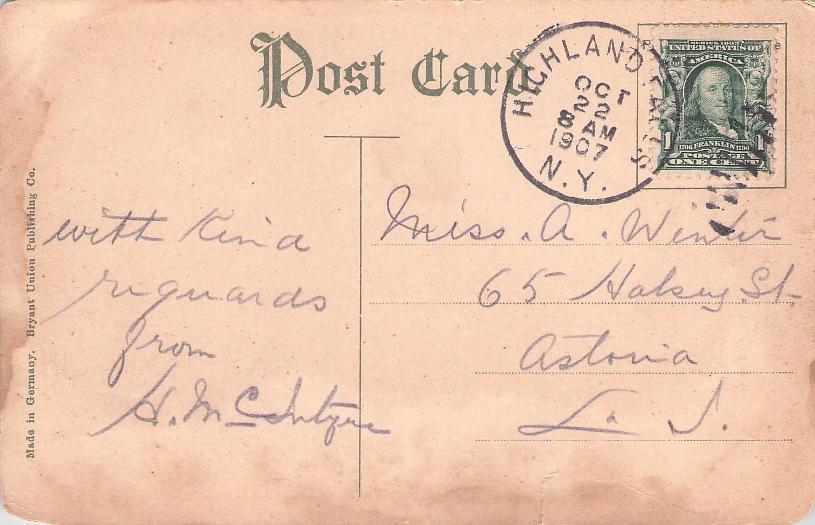 Post Card
HIGHLAND FALLS
OCT
22
8 AM
1907
N.Y.
SERIES 1902
UNITED STATES OF
AMERICA
1 1
1706 FRANKLIN 1790
POSTAGE
ONE CENT
with Kind
reguards
from
H. McIntyre
Miss. A. Winter
65 Halsey St.
Astoria
L. I.
Made in Germany. Bryant Union Publishing Co.